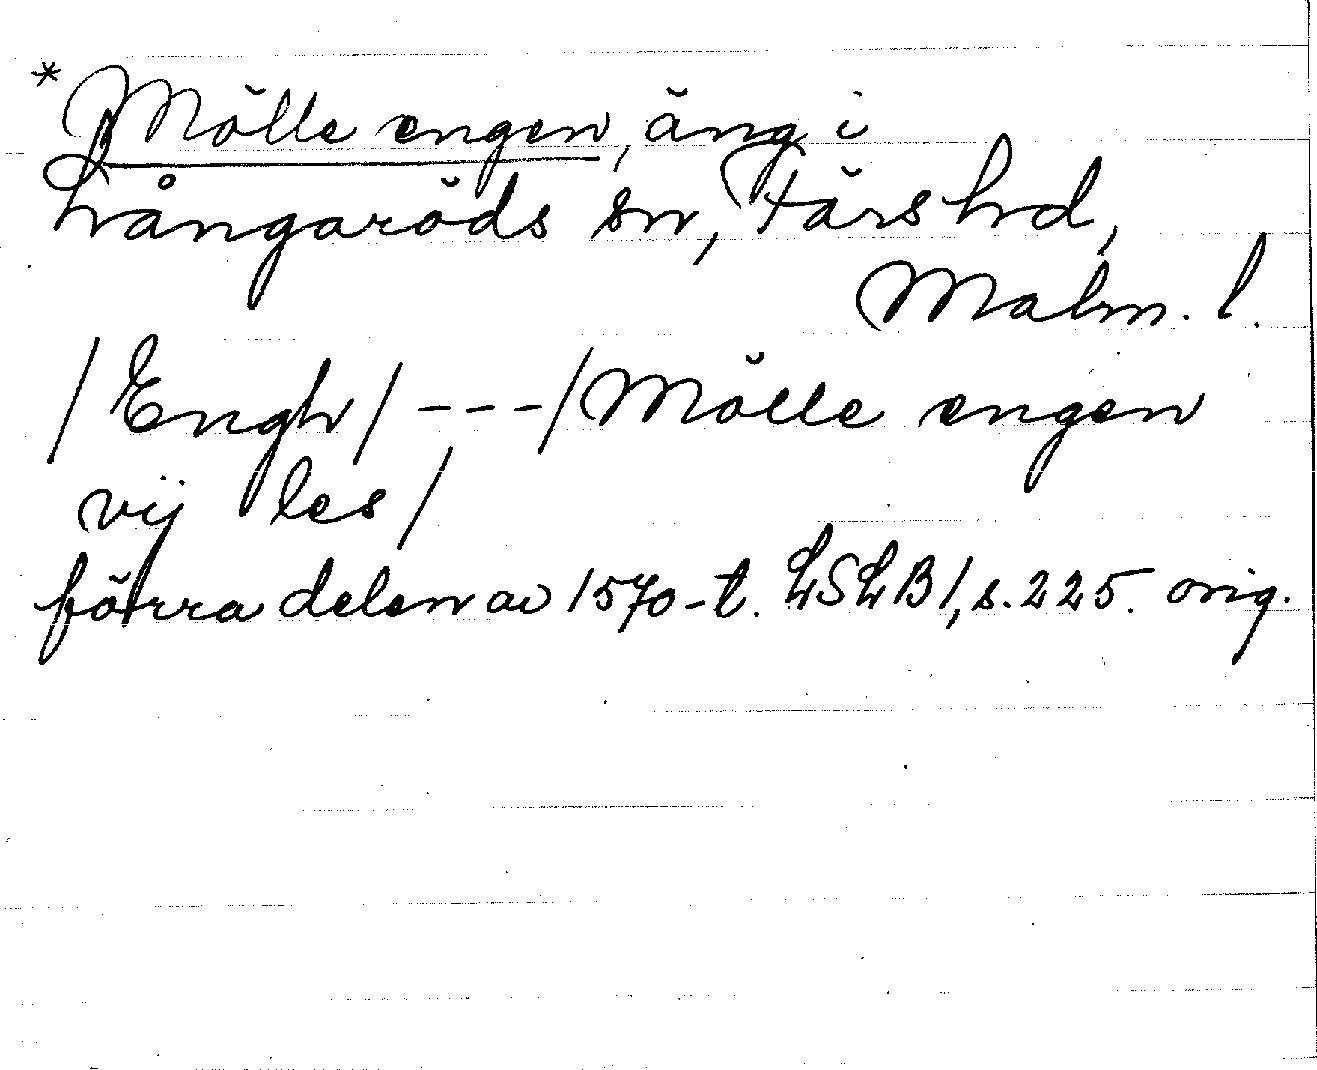 *Mölle engen, äng i
Långaröds sn, Färs hd,
Malm. l.
/Engh/ - - - /Mölle engen
vij les/
förra delen av 1570-t. LSLB1, s. 225. orig.